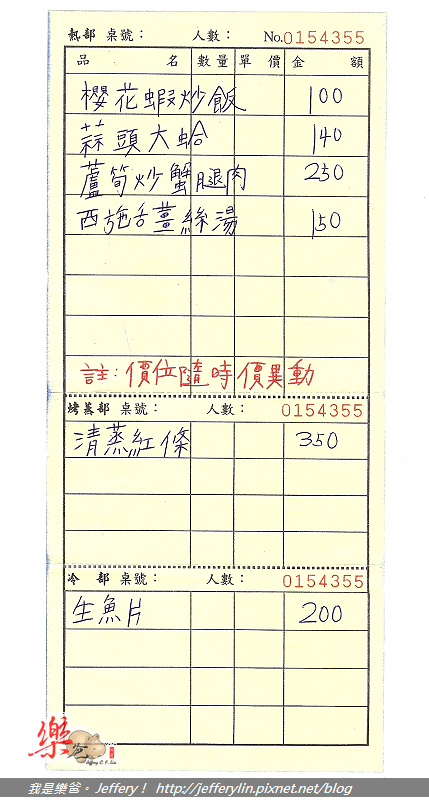 熱部 桌號: 人數: No.0154355
品名 數量 單價 金額
櫻花蝦炒飯 100
蒜頭大蛤 140
蘆筍炒蟹腿肉 250
西施舌薑絲湯 150
註:價位隨時價異動
烤蒸部 桌號: 人數: 0154355
清蒸紅條 350
冷部 桌號: 人數: 0154355
生魚片 200
樂爸
Jeffery C. F. Lin
我是樂爸。Jeffery! http://jefferylin.pixnet.net/blog